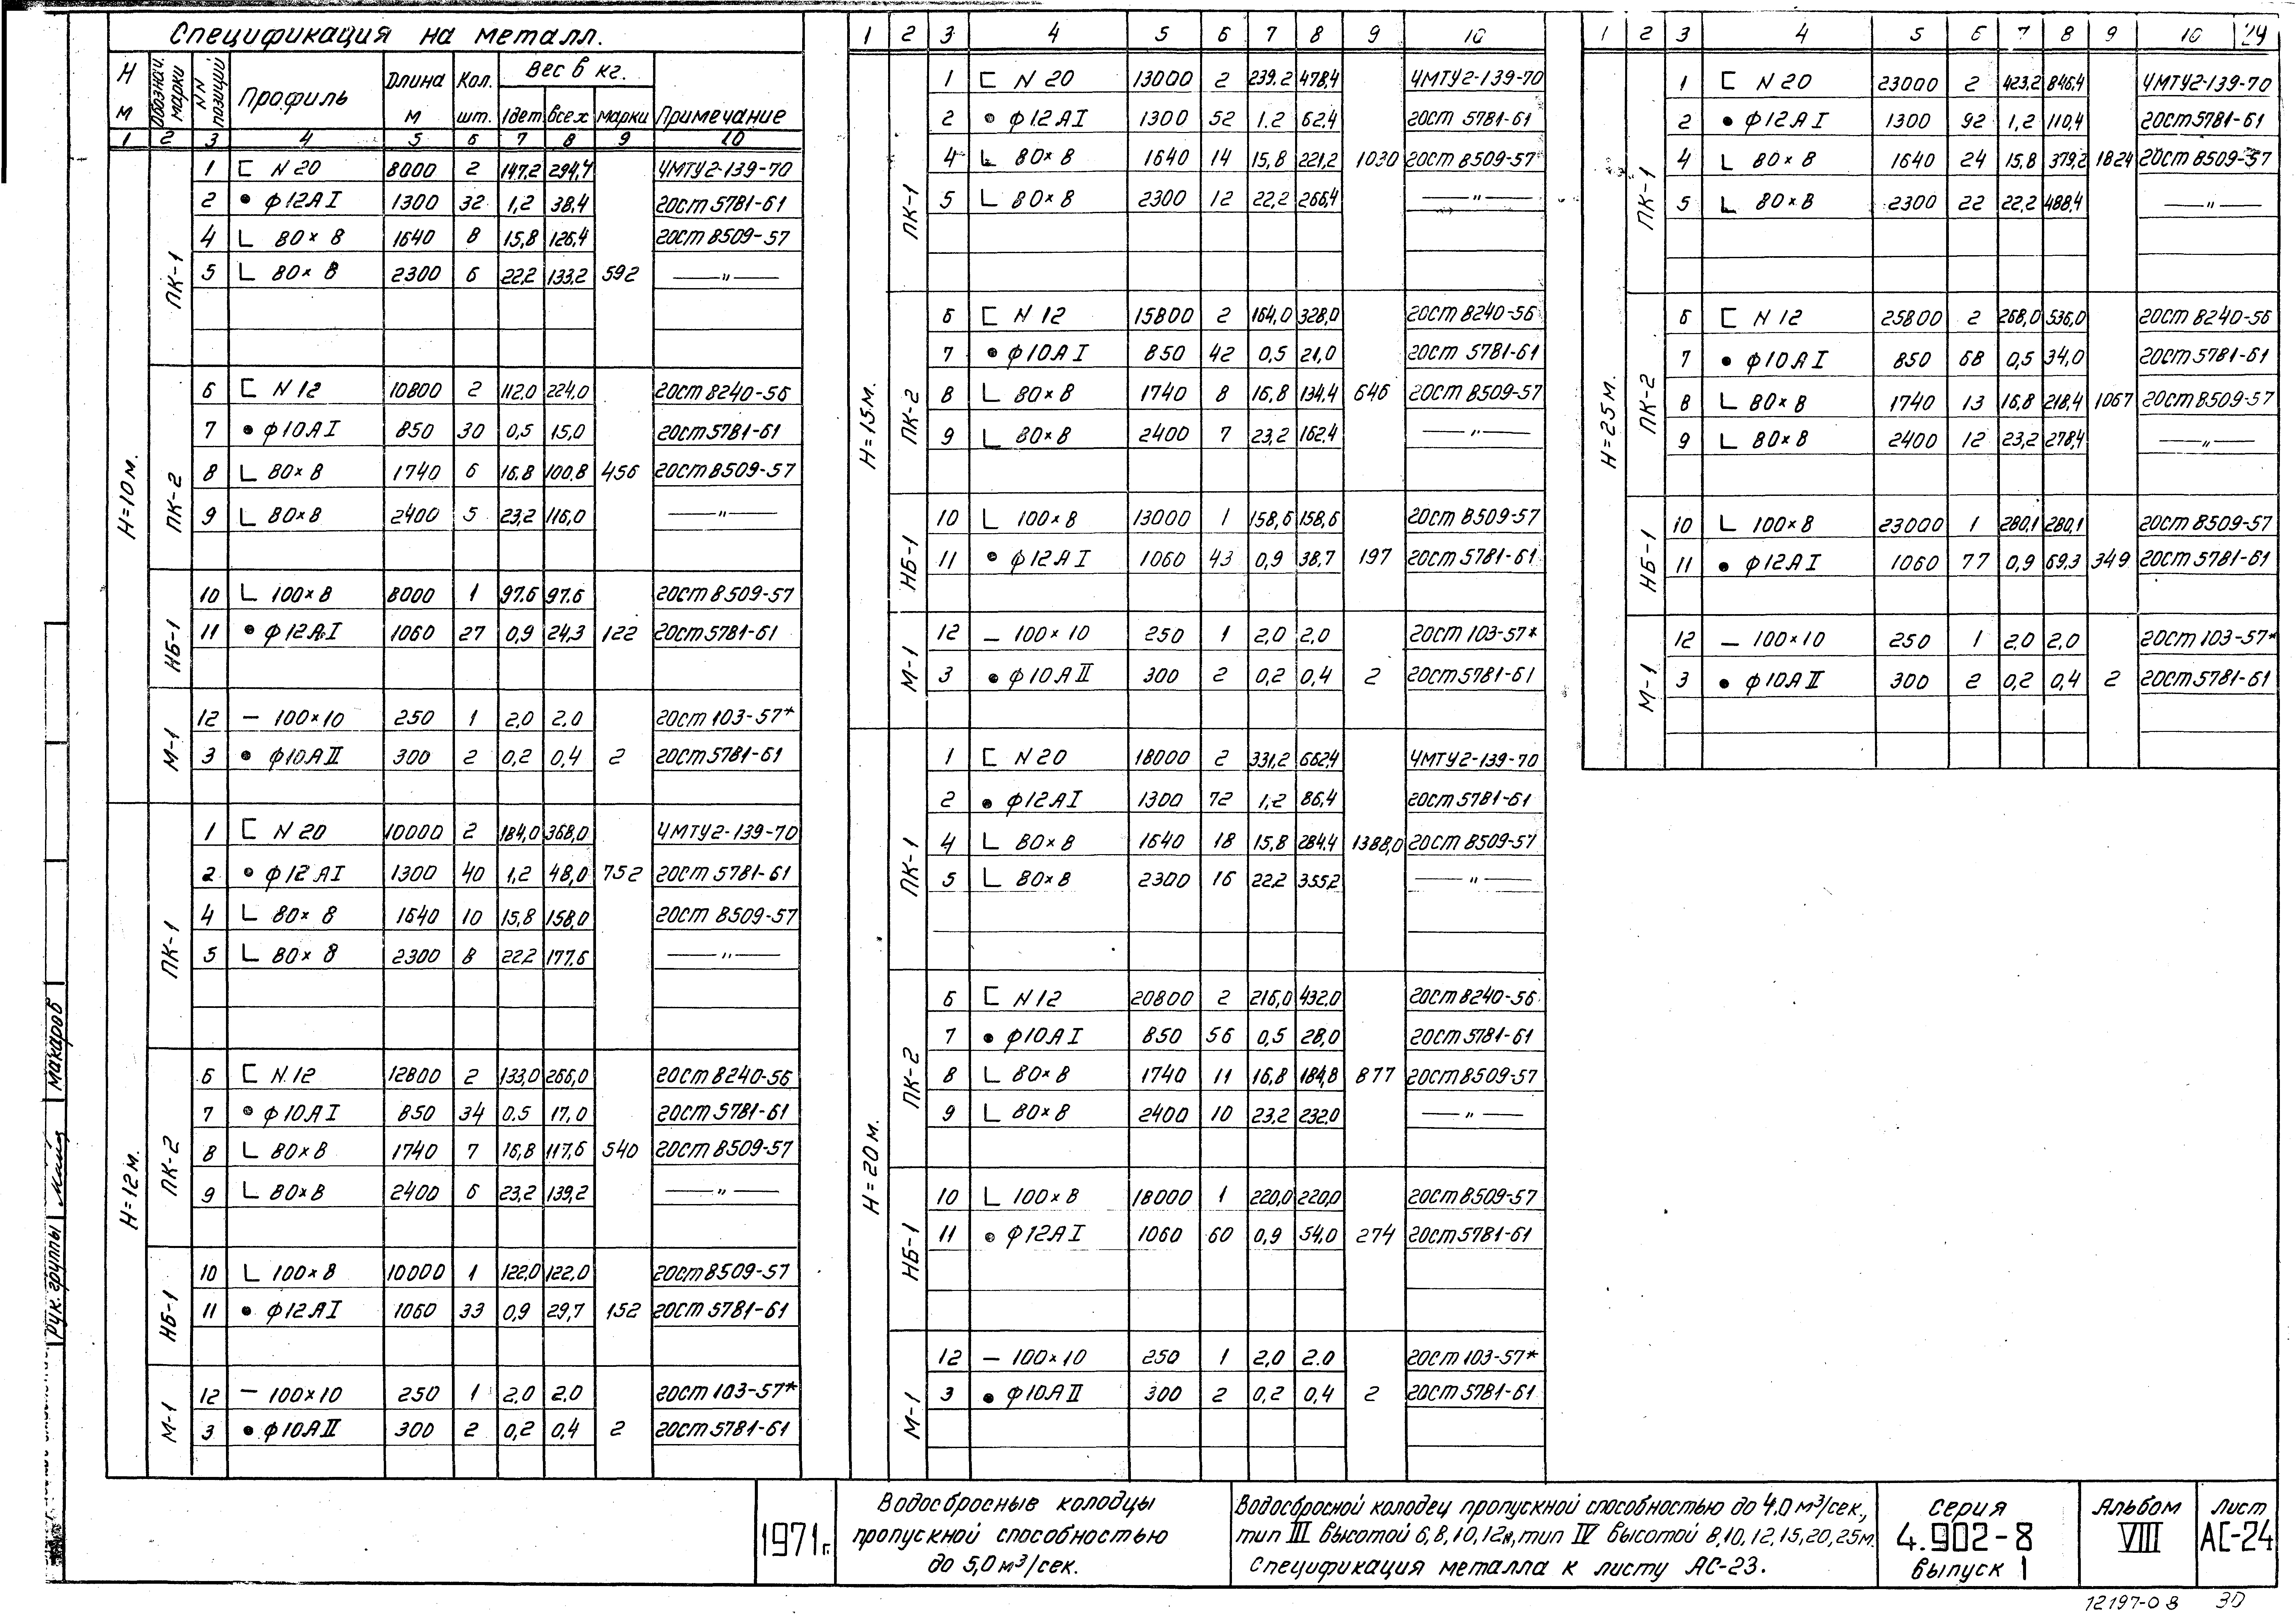 Спецификация на металл.
Н м | Обознач. марки | NN позиций | Профиль | Длина м | Кол. шт. | Вес в кг. 1дет | всех | марки | Примечание
1 | 2 | 3 | 4 | 5 | 6 | 7 | 8 | 9 | 10
Н=10м.
ПК-1
1 | [ N 20 | 8000 | 2 | 147.2 | 294,4 | | ЧМТУ2-139-70
2 | • ф12АI | 1300 | 32 | 1,2 | 38.4 | | гост 5781-61
4 | L 80×8 | 1640 | 8 | 15,8 | 126,4 | | гост 8509-57
5 | L 80×8 | 2300 | 6 | 22,2 | 133,2 | 592 | —"—
ПК-2
6 | [ N 12 | 10800 | 2 | 112.0 | 224,0 | | гост 8240-56
7 | • ф10АI | 850 | 30 | 0,5 | 15,0 | | гост 5781-61
8 | L 80×8 | 1740 | 6 | 16.8 | 100.8 | 456 | гост 8509-57
9 | L 80×8 | 2400 | 5 | 23,2 | 116,0 | | —"—
НБ-1
10 | L 100×8 | 8000 | 1 | 97.6 | 97.6 | | гост 8509-57
11 | • ф12АI | 1060 | 27 | 0,9 | 24,3 | 122 | гост 5781-61
М-1
12 | — 100×10 | 250 | 1 | 2,0 | 2.0 | | гост 103-57*
3 | • ф10АII | 300 | 2 | 0,2 | 0,4 | 2 | гост 5781-61
Н=12м.
ПК-1
1 | [ N 20 | 10000 | 2 | 184,0 | 368,0 | | ЧМТУ2-139-70
2 | • ф12АI | 1300 | 40 | 1,2 | 48,0 | 752 | гост 5781-61
4 | L 80×8 | 1640 | 10 | 15,8 | 158,0 | | гост 8509-57
5 | L 80×8 | 2300 | 8 | 22,2 | 177.6 | | —"—
ПК-2
6 | [ N 12 | 12800 | 2 | 133,0 | 266,0 | | гост 8240-56
7 | • ф10АI | 850 | 34 | 0.5 | 17,0 | | гост 5781-61
8 | L 80×8 | 1740 | 7 | 16,8 | 117,6 | 540 | гост 8509-57
9 | L 80×8 | 2400 | 6 | 23,2 | 139,2 | | —"—
НБ-1
10 | L 100×8 | 10000 | 1 | 122,0 | 122,0 | | гост 8509-57
11 | • ф12АI | 1060 | 33 | 0,9 | 29,7 | 152 | гост 5781-61
М-1
12 | — 100×10 | 250 | 1 | 2.0 | 2,0 | | гост 103-57*
3 | • ф10АII | 300 | 2 | 0,2 | 0,4 | 2 | гост 5781-61
1 | 2 | 3 | 4 | 5 | 6 | 7 | 8 | 9 | 10
Н=15м.
ПК-1
1 | [ N 20 | 13000 | 2 | 239.2 | 478,4 | | ЧМТУ2-139-70
2 | • ф12АI | 1300 | 52 | 1.2 | 62.4 | | гост 5781-61
4 | L 80×8 | 1640 | 14 | 15,8 | 221,2 | 1030 | гост 8509-57
5 | L 80×8 | 2300 | 12 | 22,2 | 266,4 | | —"—
ПК-2
6 | [ N 12 | 15800 | 2 | 164,0 | 328,0 | | гост 8240-56
7 | • ф10АI | 850 | 42 | 0,5 | 21,0 | | гост 5781-61
8 | L 80×8 | 1740 | 8 | 16,8 | 134,4 | 646 | гост 8509-57
9 | L 80×8 | 2400 | 7 | 23,2 | 162.4 | | —"—
НБ-1
10 | L 100×8 | 13000 | 1 | 158,6 | 158,6 | | гост 8509-57
11 | • ф12АI | 1060 | 43 | 0,9 | 38,7 | 197 | гост 5781-61
М-1
12 | — 100×10 | 250 | 1 | 2,0 | 2,0 | | гост 103-57*
3 | • ф10АII | 300 | 2 | 0,2 | 0,4 | 2 | гост 5781-61
Н=20м.
ПК-1
1 | [ N 20 | 18000 | 2 | 331,2 | 662,4 | | ЧМТУ2-139-70
2 | • ф12АI | 1300 | 72 | 1,2 | 86,4 | | гост 5781-61
4 | L 80×8 | 1640 | 18 | 15,8 | 284.4 | 1388,0 | гост 8509-57
5 | L 80×8 | 2300 | 16 | 22,2 | 355,2 | | —"—
ПК-2
6 | [ N 12 | 20800 | 2 | 216,0 | 432,0 | | гост 8240-56
7 | • ф10АI | 850 | 56 | 0,5 | 28,0 | | гост 5781-61
8 | L 80×8 | 1740 | 11 | 16,8 | 184,8 | 877 | гост 8509-57
9 | L 80×8 | 2400 | 10 | 23,2 | 232,0 | | —"—
НБ-1
10 | L 100×8 | 18000 | 1 | 220,0 | 220,0 | | гост 8509-57
11 | • ф12АI | 1060 | 60 | 0,9 | 54,0 | 274 | гост 5781-61
М-1
12 | — 100×10 | 250 | 1 | 2,0 | 2.0 | | гост 103-57*
3 | • ф10АII | 300 | 2 | 0,2 | 0,4 | 2 | гост 5781-61
1 | 2 | 3 | 4 | 5 | 6 | 7 | 8 | 9 | 10 | 24
Н=25м.
ПК-1
1 | [ N 20 | 23000 | 2 | 423,2 | 846,4 | | ЧМТУ2-139-70
2 | • ф12АI | 1300 | 92 | 1,2 | 110,4 | | гост 5781-61
4 | L 80×8 | 1640 | 24 | 15,8 | 379,2 | 1824 | гост 8509-57
5 | L 80×8 | 2300 | 22 | 22,2 | 488,4 | | —"—
ПК-2
6 | [ N 12 | 25800 | 2 | 268,0 | 536,0 | | гост 8240-56
7 | • ф10АI | 850 | 68 | 0,5 | 34,0 | | гост 5781-61
8 | L 80×8 | 1740 | 13 | 16,8 | 218,4 | 1067 | гост 8509-57
9 | L 80×8 | 2400 | 12 | 23,2 | 278,4 | | —"—
НБ-1
10 | L 100×8 | 23000 | 1 | 280,1 | 280,1 | | гост 8509-57
11 | • ф12АI | 1060 | 77 | 0,9 | 69.3 | 349 | гост 5781-61
М-1
12 | — 100×10 | 250 | 1 | 2,0 | 2,0 | | гост 103-57*
3 | • ф10АII | 300 | 2 | 0,2 | 0,4 | 2 | гост 5781-61
Рук. группы | Макаров
1971г.
Водосбросные колодцы
пропускной способностью
до 5,0 м³/сек.
Водосбросной колодец пропускной способностью до 4.0 м³/сек.,
тип III высотой 6,8,10,12м, тип IV высотой 8,10,12,15,20,25м.
Спецификация металла к листу АС-23.
серия
4.902-8
выпуск 1
Альбом
VIII
Лист
АС-24
12197-08 30